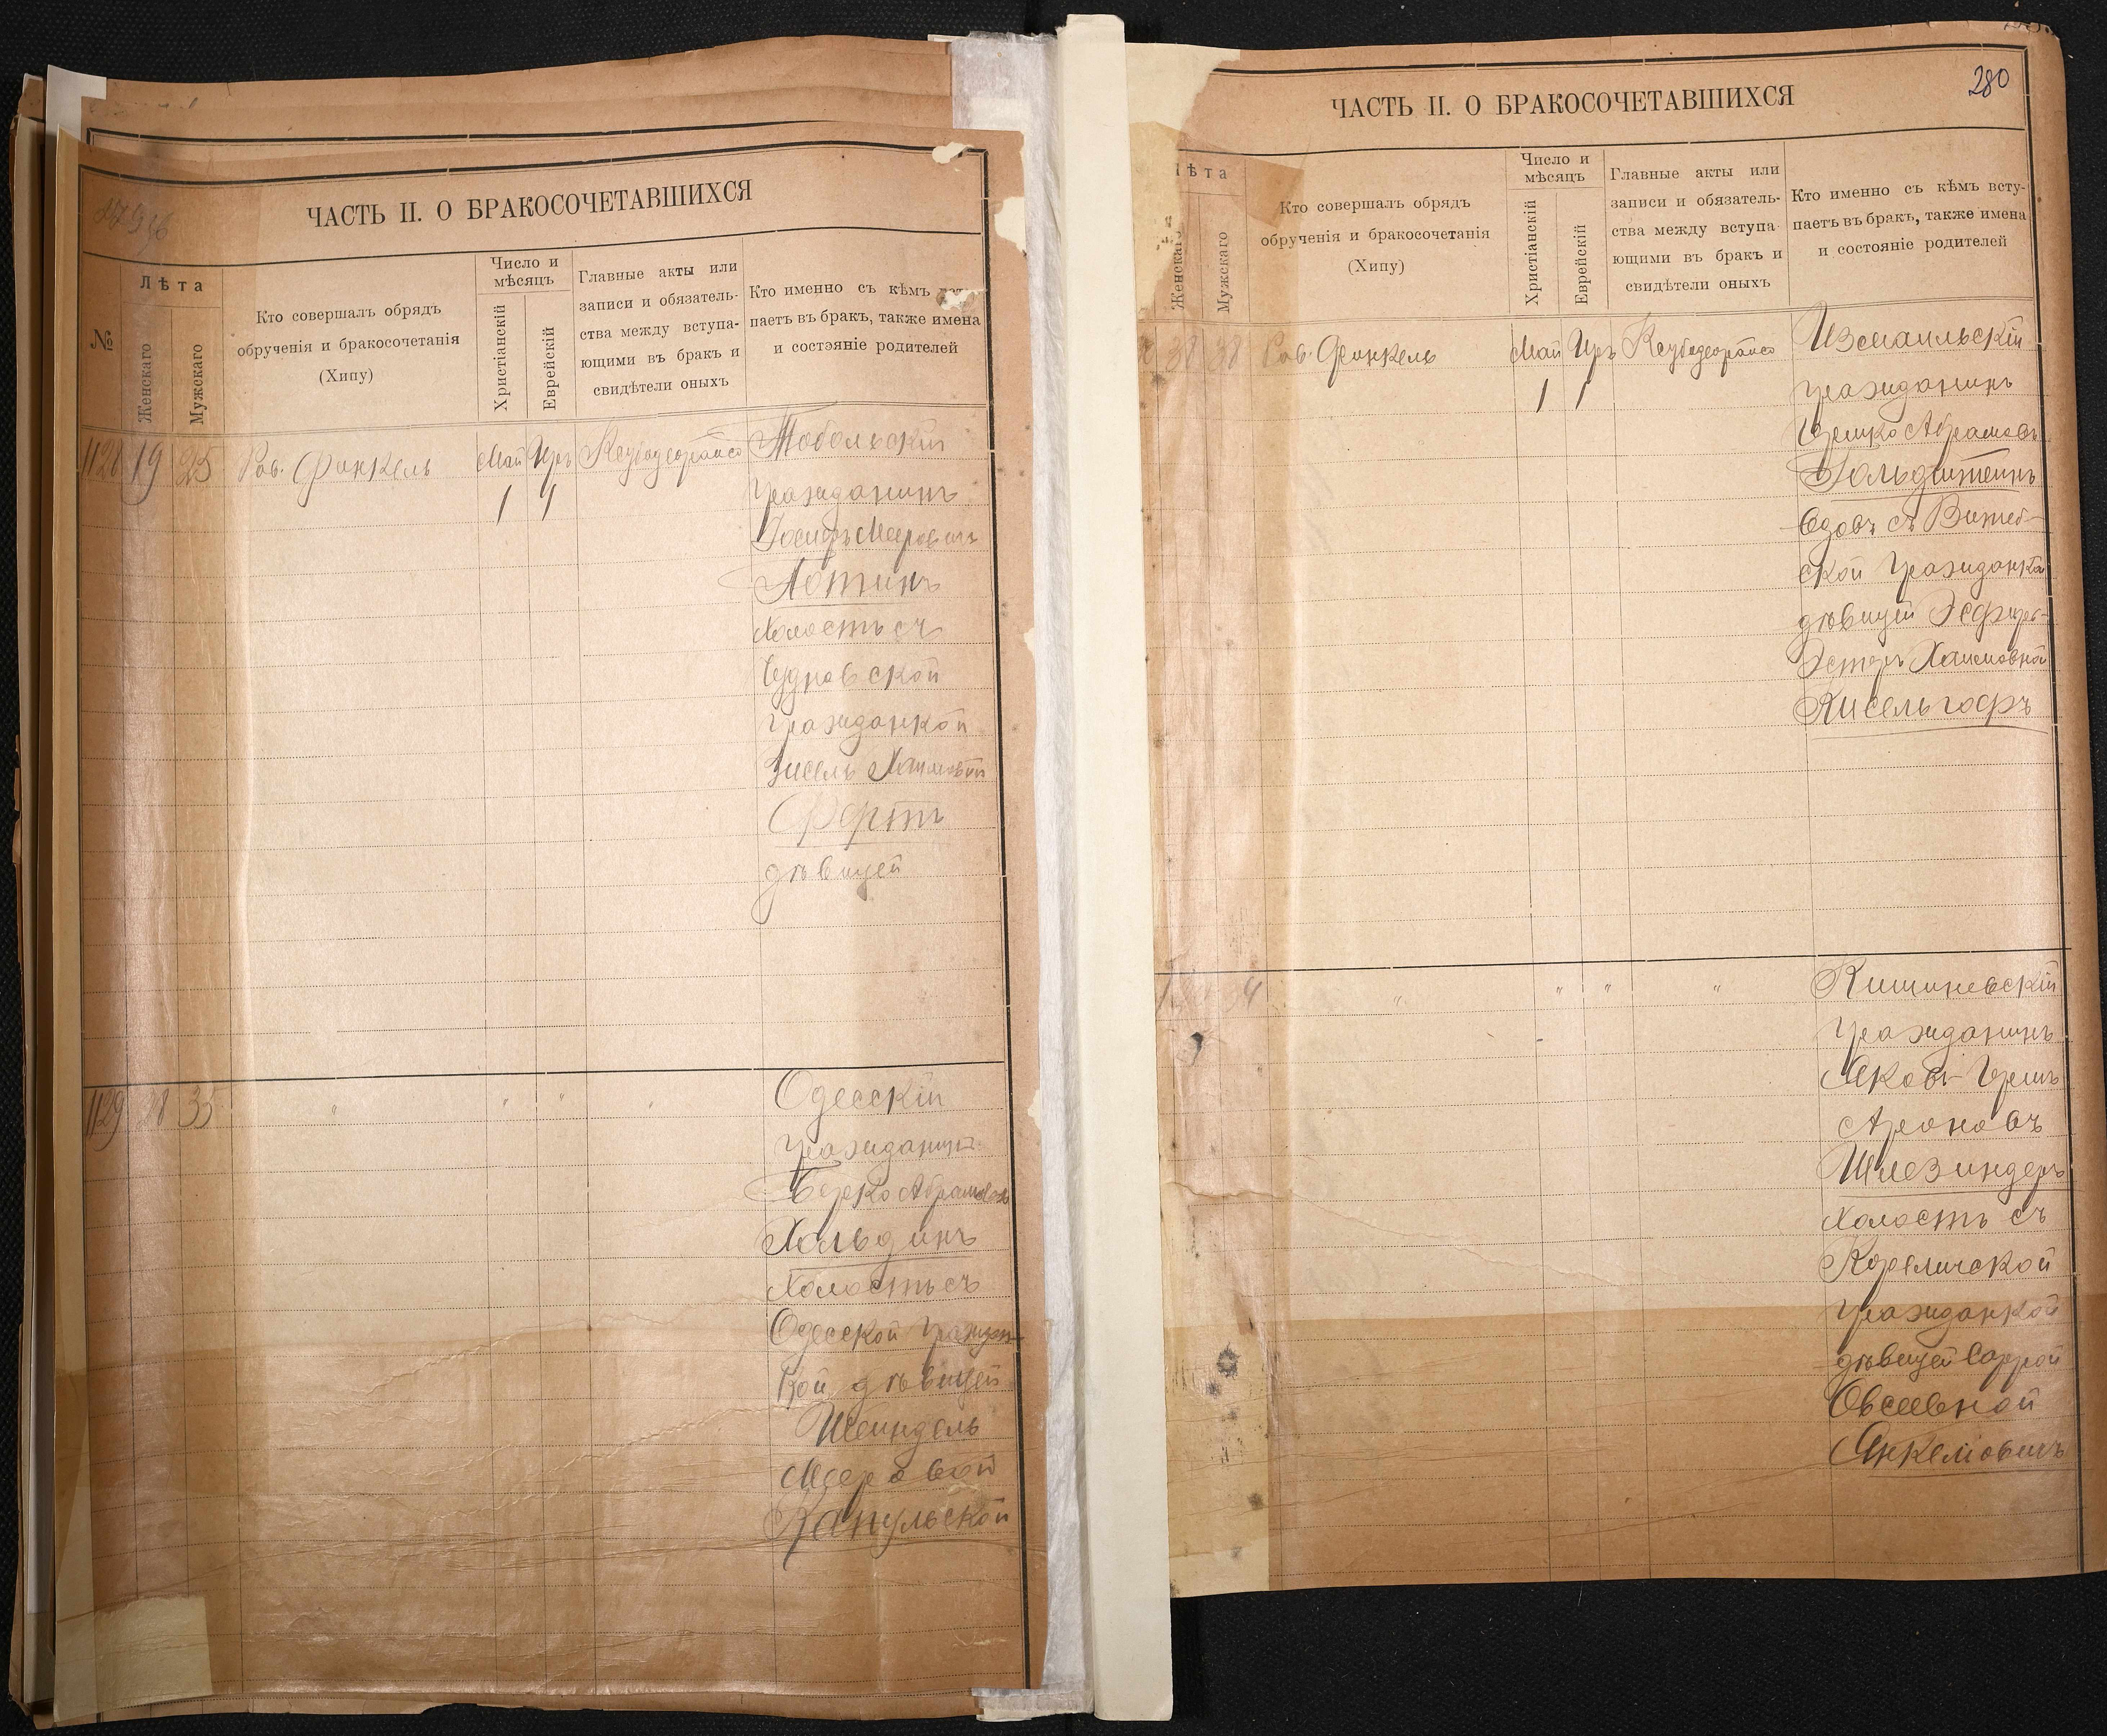 ЧАСТЬ II. О БРАКОСОЧЕТАВШИХСЯ
№
Лѣта
Женскаго
Мужскаго
Кто совершалъ обрядъ
обрученія и бракосочетанія
(Хипу)
Число и
мѣсяцъ
Христіанскій
Еврейскій
Главные акты или
записи и обязатель-
ства между вступа-
ющими въ бракъ и
свидѣтели оныхъ
Кто именно съ кѣмъ
паетъ въ бракъ, также имена
и состэяніе родителей
1128 19 25 Рав. Финкель Май Иръ Тобольскій
1
гражданинъ
Іосифъ Мееровичъ
Лотинъ
холостъ съ
гражданкой
Хаимовой
Фертъ
дѣвицей
1129 28 35 " " " " Одесскій
гражданинъ
Берко Абрамовъ
Хольдинъ
холостъ съ
Одесской граждан-
кой дѣвицей
Шейндель
Мееровой
Капульской
280
ЧАСТЬ II. О БРАКОСОЧЕТАВШИХСЯ
Лѣта
Женскаго
Мужскаго
Кто совершалъ обрядъ
обрученія и бракосочетанія
(Хипу)
Число и
мѣсяцъ
Христіанскій
Еврейскій
Главные акты или
записи и обязатель-
ства между вступа-
ющими въ бракъ и
свидѣтели оныхъ
Кто именно съ кѣмъ всту-
паетъ въ бракъ, также имена
и состояніе родителей
38 38 Рав. Финкель Май Иръ Измаильскій
1 1 гражданинъ
Гершко Абрамовъ
Гольдштейнъ
вдовъ съ Витеб-
ской гражданкой
дѣвицей Эсфирь-
Эстеръ Хаимовной
Кисельгофъ
" " " " Кишиневскій
гражданинъ
Яковъ-Гершъ
Ароновъ
Шлезингеръ
холостъ съ
Кореличской
гражданкой
дѣвицей Саррой
Овсеевной
Янкелиовичъ